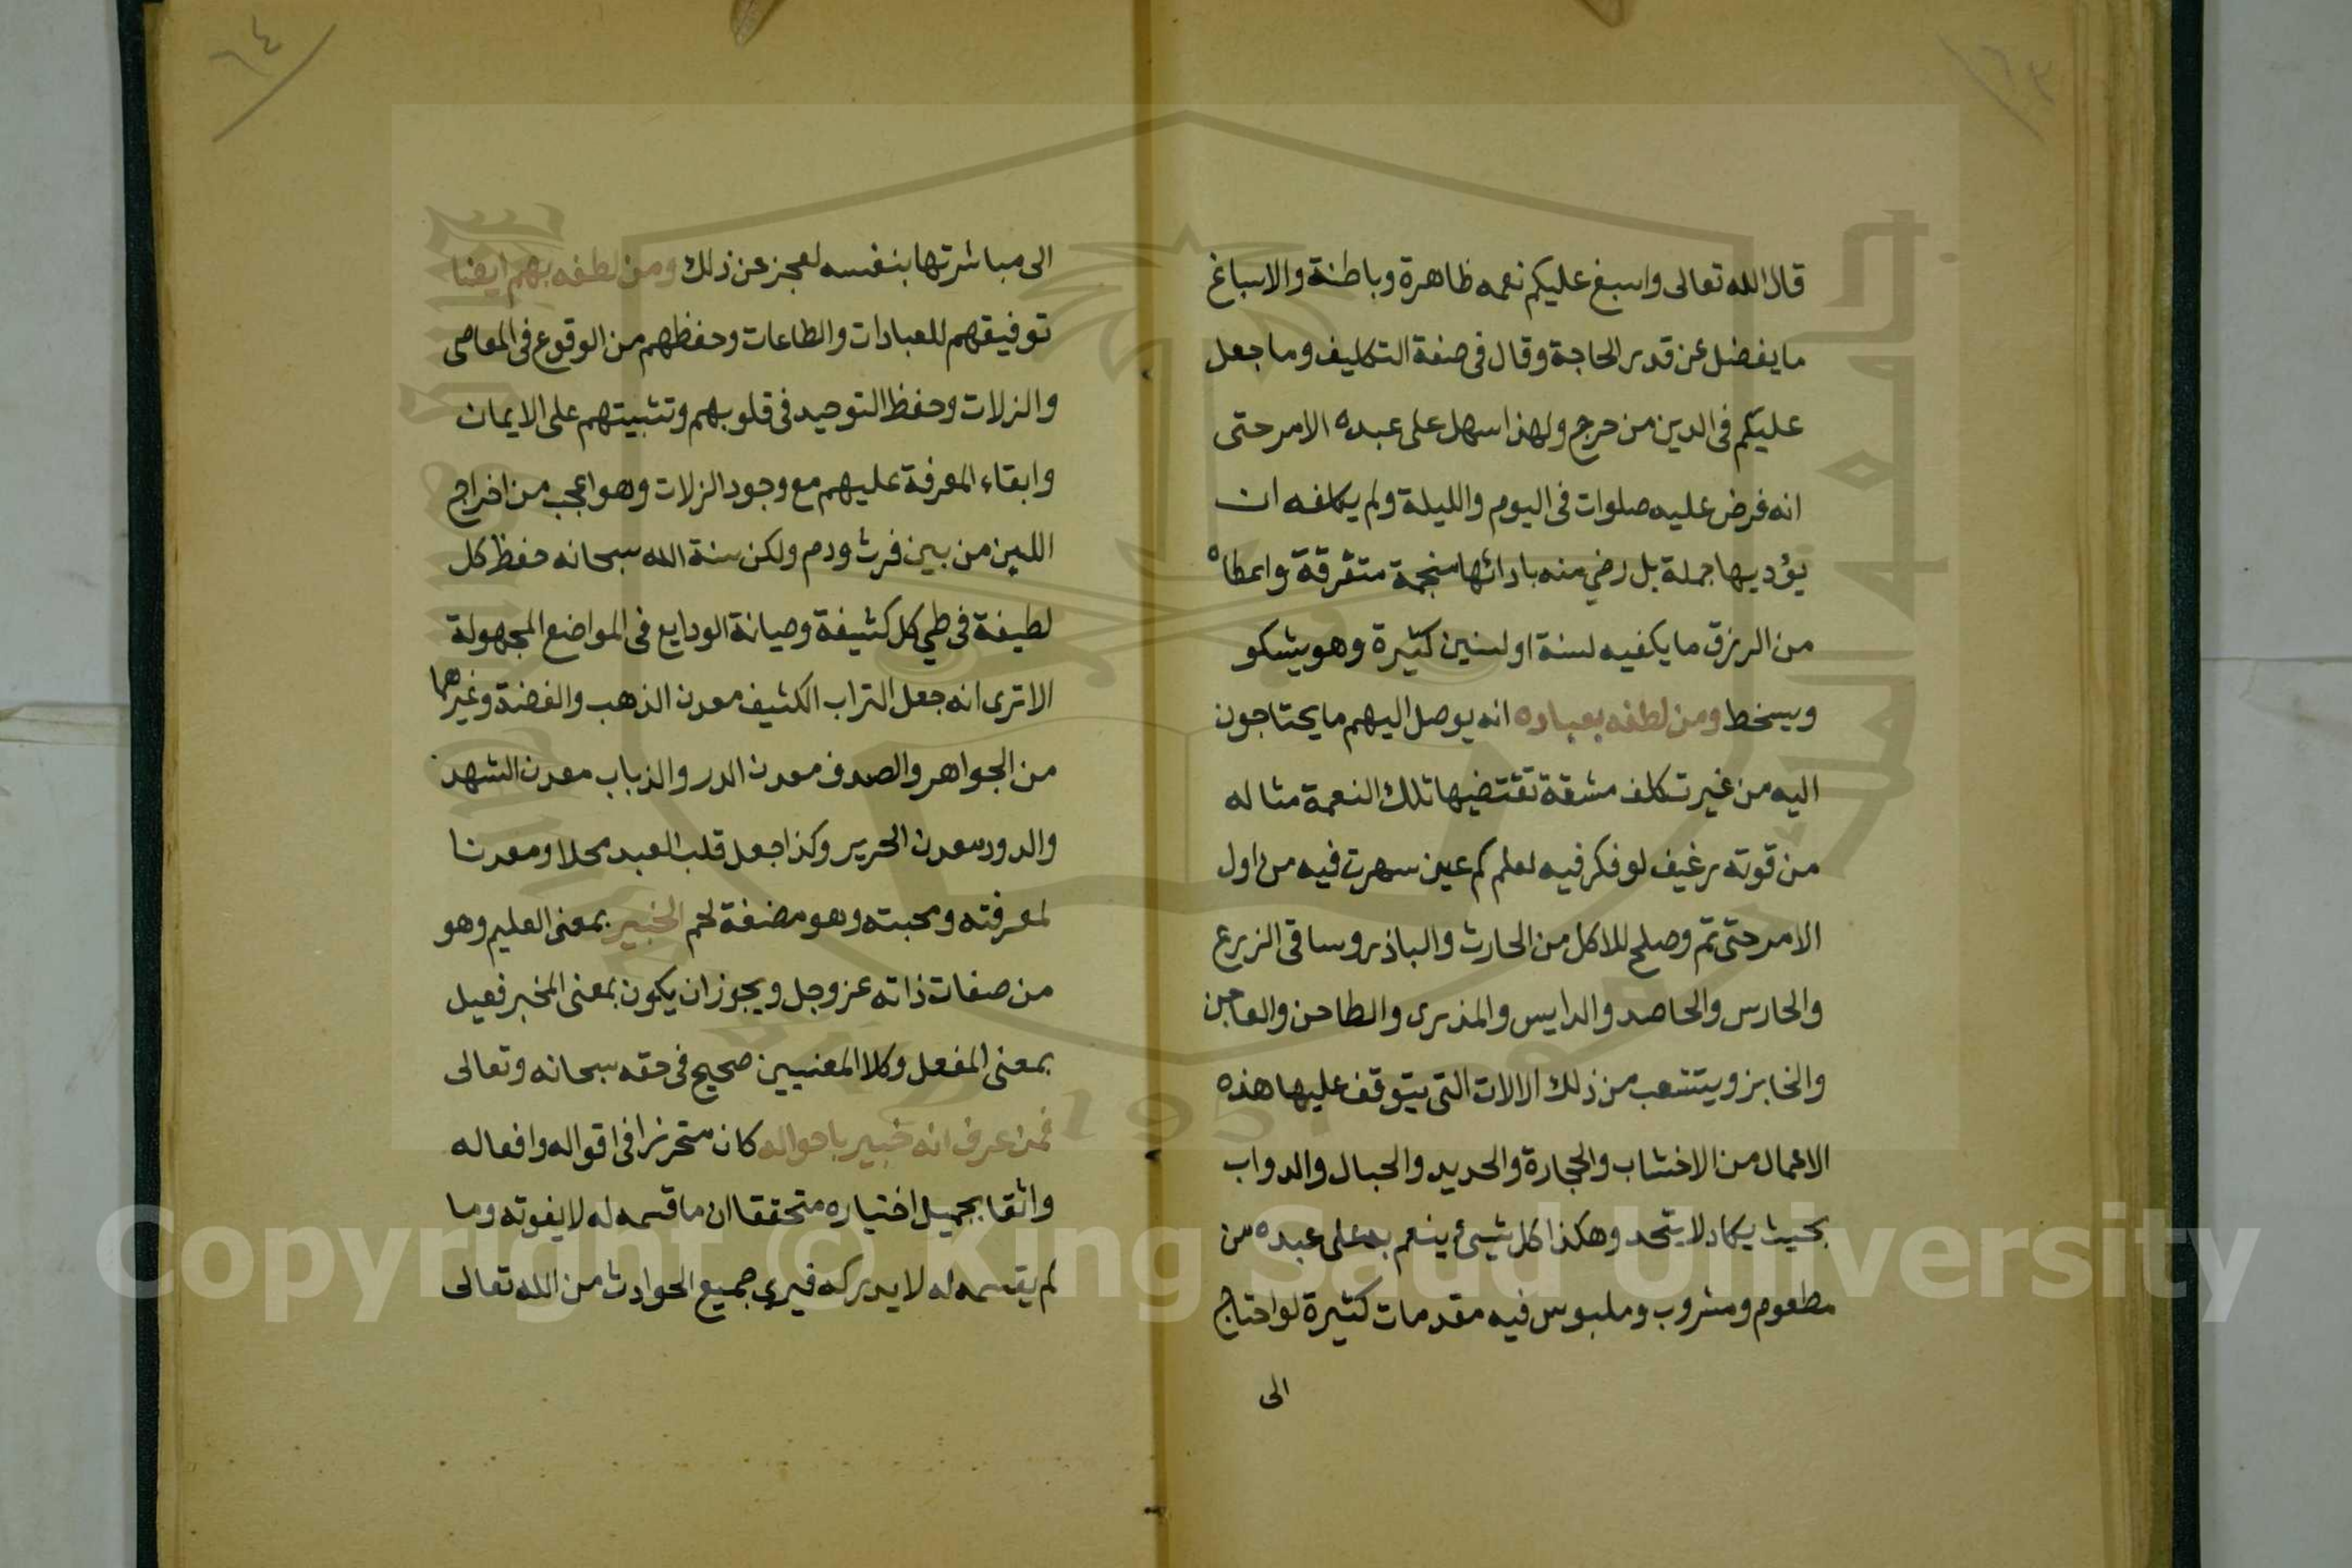 ٦٣
قال الله تعالى واسبغ عليكم نعمه ظاهرة وباطنة والاسباغ
ما يفضل عن قدر الحاجة وقال فى صفة التكليف وما جعل
عليكم فى الدين من حرج ولهذا سهل على عبده الامر حتى
انه فرض عليه صلوات فى اليوم والليلة ولم يكلفه ان
يؤديها جملة بل رضي منه بادائها منجمة متفرقة واعطاه
من الرزق ما يكفيه لسنة او لسنين كثيرة وهو يشكو
ويسخط ومن لطفه بعباده انه يوصل اليهم ما يحتاجون
اليه من غير تكلف مشقة تقتضيها تلك النعمة مثاله
من قوته رغيف لو فكر فيه لعلم كم عين سهرت فيه من اول
الامر حتى تم وصلح للاكل من الحارث والباذر وساقى الزرع
والحارس والحاصد والدايس والمذرى والطاحن والعاجن
والخابز ويتشعب من ذلك الالات التى يتوقف عليها هذه
الاعمال من الاخشاب والحجارة والحديد والحبال والدواب
بحيث يكاد لا يتحد وهكذا كل شيئ ينعم به على عبده من
مطعوم ومشروب وملبوس فيه مقدمات كثيرة لو احتاج
الى
٦٤
الى مباشرتها بنفسه لعجز عن ذلك ومن لطفه بهم ايضا
توفيقهم للعبادات والطاعات وحفظهم من الوقوع فى المعاصى
والزلات وحفظ التوحيد فى قلوبهم وتثبيتهم على الايمان
وابقاء المعرفة عليهم مع وجود الزلات وهو اعجب من اخراج
اللبن من بين فرث ودم ولكن سنة الله سبحانه حفظ كل
لطيفة فى طي كل كثيفة وصيانة الودايع فى المواضع المجهولة
الا ترى انه جعل التراب الكثيف معدن الذهب والفضة وغيرهما
من الجواهر والصدف معدن الدر والذباب معدن الشهد
والدود معدن الحرير وكذا جعل قلب العبد محلا ومعدنا
لمعرفته ومحبته وهو مضغة لحم الخبير بمعنى العليم وهو
من صفات ذاته عز وجل ويجوز ان يكون بمعنى المخبر فعيل
بمعنى المفعل وكلا المعنيين صحيح فى حقه سبحانه وتعالى
فمن عرف انه خبير باحواله كان متحرزا فى اقواله وافعاله
واثقا بجميل اختياره متحققا ان ما قسمه له لا يفوته وما
لم يقسمه له لا يدركه فيرى جميع الحوادث من الله تعالى
Copyright © King Saud University